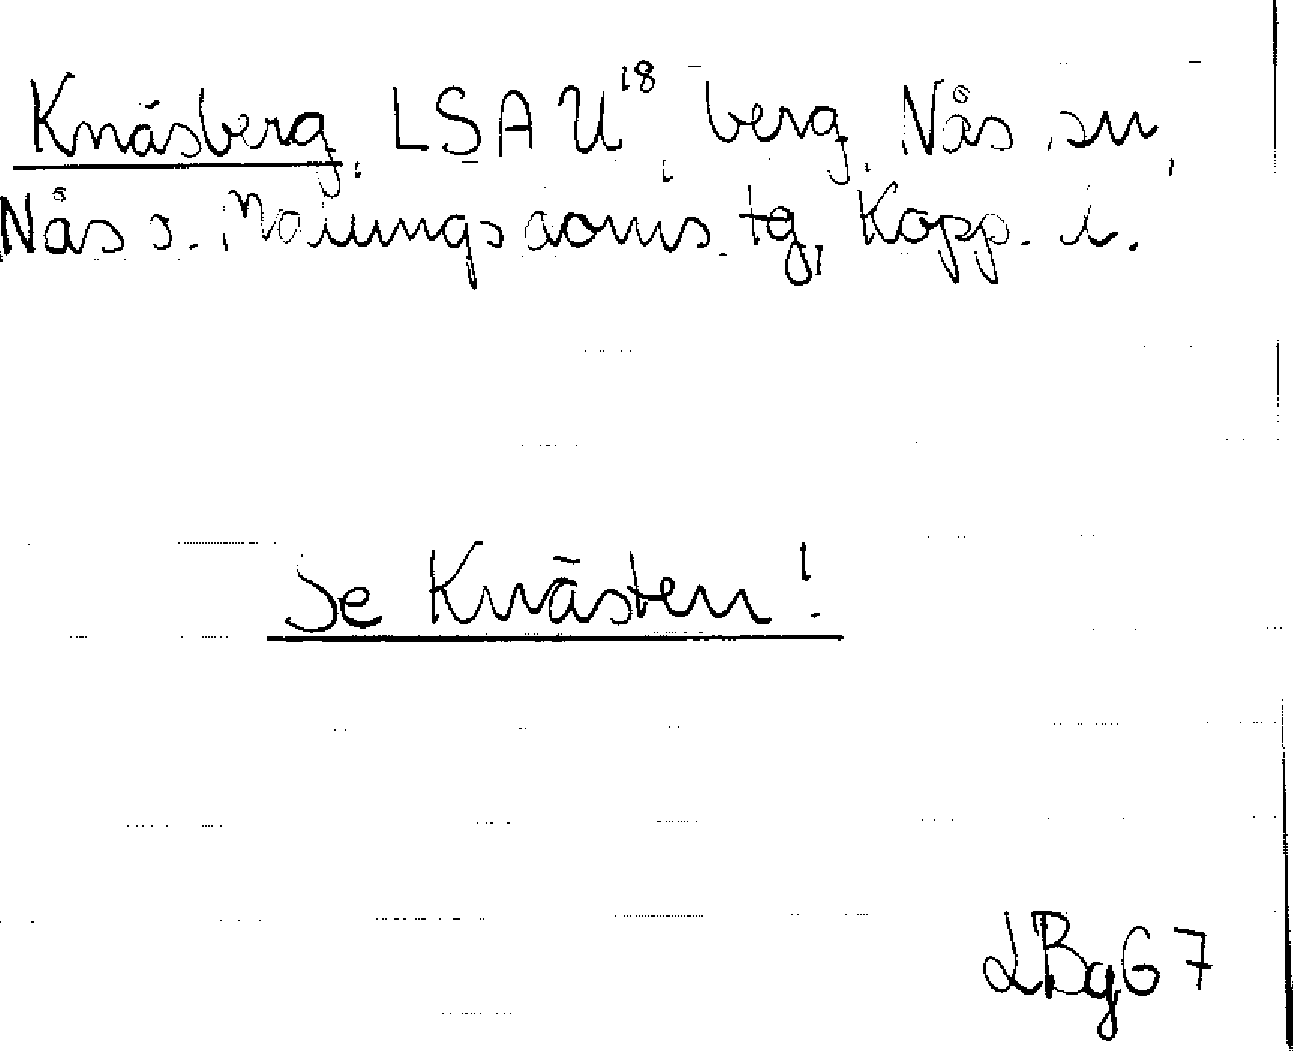 Knäsberg, LSA U¹⁸, berg, Nås sn,
Nås o. Malungs doms. tg, Kopp. l.
Se Knästen!
LBg67